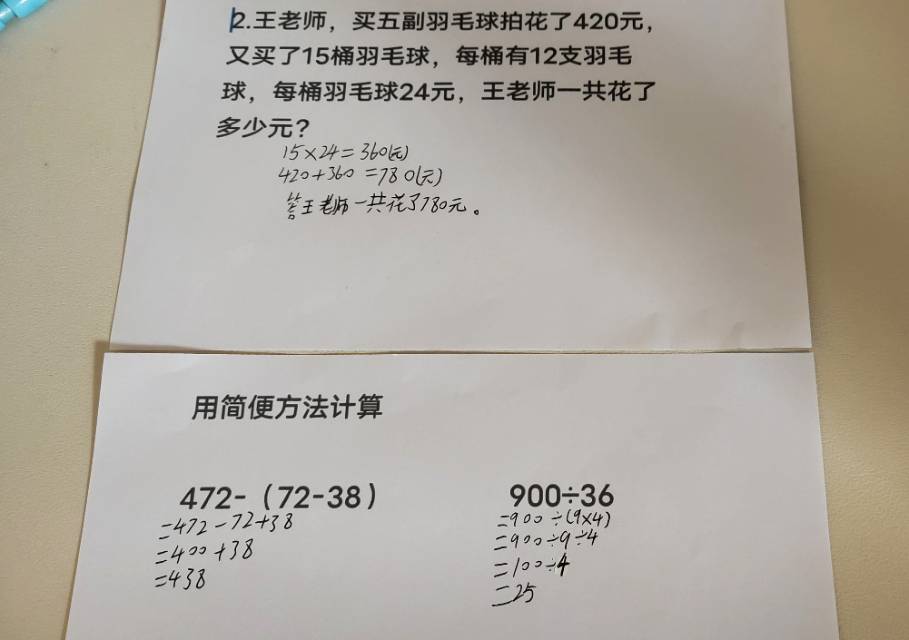 2.王老师，买五副羽毛球拍花了420元，
又买了15桶羽毛球，每桶有12支羽毛
球，每桶羽毛球24元，王老师一共花了
多少元？
15×24=360(元)
420+360=780(元)
答王老师一共花了780元。
用简便方法计算
472-（72-38）
=472-72+38
=400+38
=438
900÷36
=900÷(9×4)
=900÷9÷4
=100÷4
=25